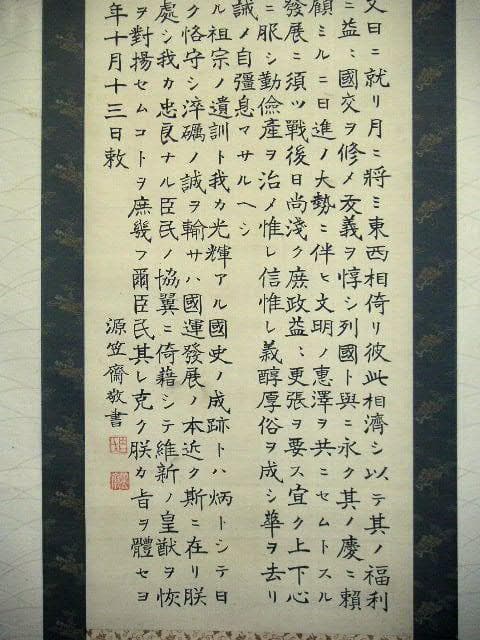 日ニ就リ月ニ將ミ東西相倚リ彼此相濟シ以テ其ノ福利
ニ益〻國交ヲ修メ友義ヲ惇シ列國ト與ニ永ク其ノ慶ニ賴
顧ミルニ日進ノ大勢ニ伴ヒ文明ノ惠澤ヲ共ニセムトスル
發展ニ須ツ戰後日尚淺ク庶政益〻更張ヲ要ス宜ク上下心
ニ服シ勤儉產ヲ治メ惟レ信惟レ義醇厚俗ヲ成シ華ヲ去リ
誡メ自彊息マサルヘシ
ル祖宗ノ遺訓ト我カ光輝アル國史ノ成跡トハ炳トシテ日
ク恪守シ淬礪ノ誠ヲ輸サハ國運發展ノ本近ク斯ニ在リ朕
處シ我カ忠良ナル臣民ノ協翼ニ倚藉シテ維新ノ皇猷ヲ恢
ヲ對揚セムコトヲ庶幾フ爾臣民其レ克ク朕カ旨ヲ體セヨ
年十月十三日敕
源笠齋敬書